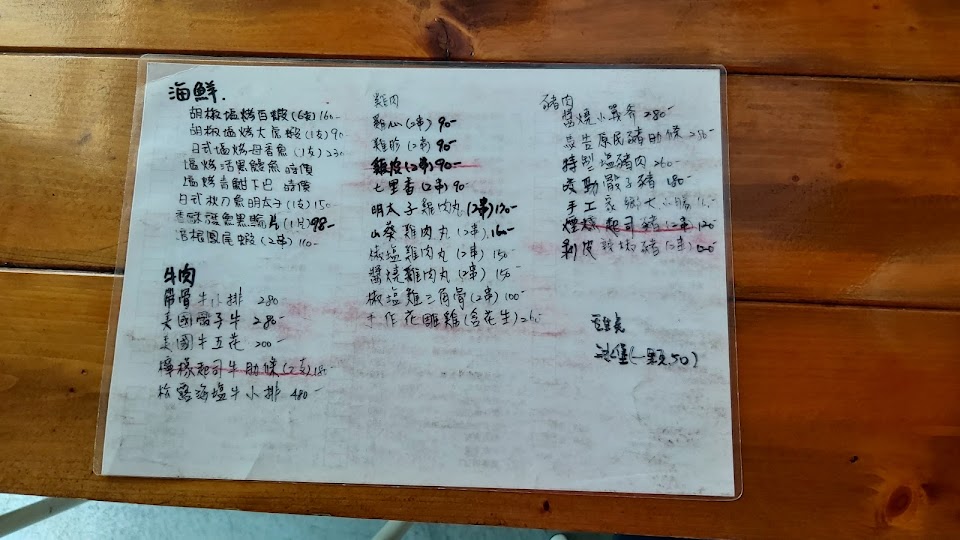 海鮮.
胡椒塩烤百蝦(6支)160-
胡椒塩烤大尾蝦(1支)90
日式塩烤母香魚(1支)230
塩烤活黑鰻魚 時價
塩烤青魽下巴 時價
日式秋刀魚明太子(1支)150
黑輪片(1片)98-
培根鳳尾蝦(2串)110-
牛肉
帶骨牛小排 280
美國骰子牛 280-
美國牛五花 200-
檸檬起司牛肋條(2支)180-
松露海塩牛小排 480-
雞肉
雞心(2串) 90-
雞胗(2串) 90-
雞皮(2串)90-
七里香(2串)90-
明太子雞肉丸(2串)170-
山葵雞肉丸(2串)160-
椒塩雞肉丸(2串)150
醬燒雞肉丸(2串)150-
椒塩雞三角骨(2串)100-
手作花雕雞(含花生)260-
豬肉
醬燒小義芥 280-
原民豬助條 280-
特製塩豬肉 260-
骰子豬 180-
手工家鄉大小腸
煙燻起司豬(2串)120
剝皮辣椒豬(2串)120
(一顆50)